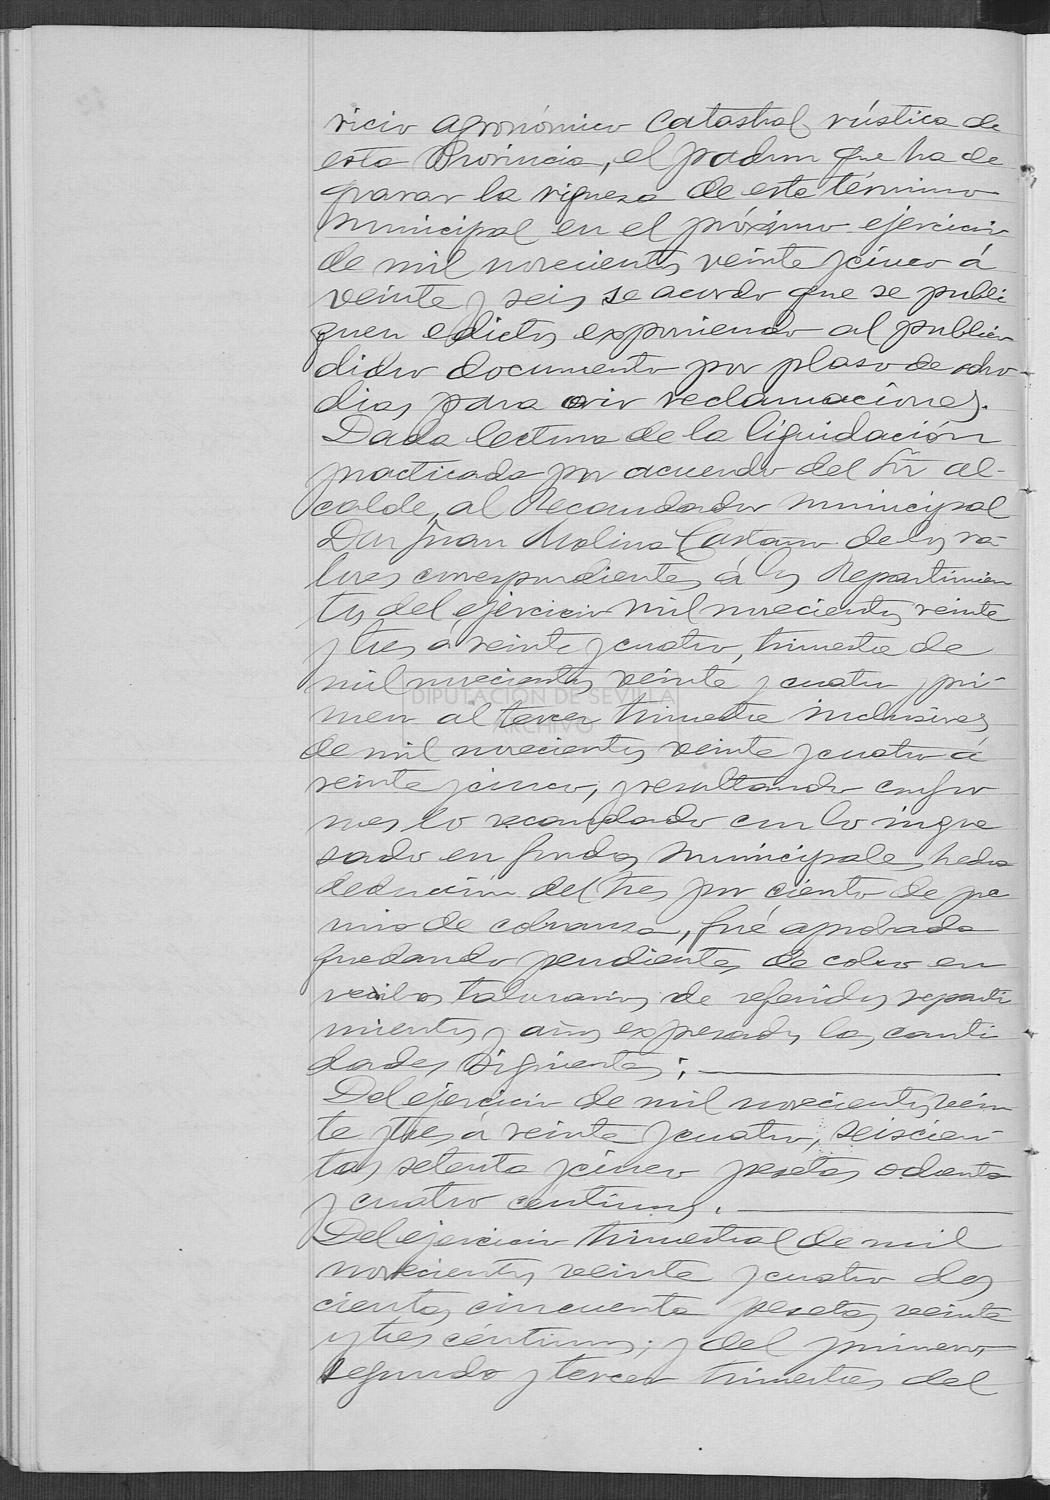 vicio agronómico Catastral rústica de
esta Provincia, el padron que ha de
gravar la riqueza de este término
municipal en el próximo ejercicio
de mil novecientos veinte y cinco á
veinte y seis se acordo que se publi
quen edictos exponiendo al publico
dicho documento por plazo de ocho
dias para oir reclamaciones.
Dada lectura de la liquidación
practicada por acuerdo del Sr al-
calde, al Recaudador municipal
Don Juan Molina Castaño de los va-
lores correspondientes á los Repartimien
tos del ejercicio mil novecientos veinte
y tres a veinte y cuatro, trimestre de
mil novecientos veinte y cuatro y pri-
mero al tercer trimestre inclusives
de mil novecientos veinte y cuatro á
veinte y cinco, y resultando confor
mes lo recaudado con lo ingre
sado en fondos municipales hecha
deducción del tres por ciento de pre
mio de cobranza, fué aprobada
quedando pendientes de cobro en
recibos talonarios de referidos reparti
mientos y años expresados las canti
dades siguientes:
Del ejercicio de mil novecientos vein
te y tres á veinte y cuatro, seiscien-
tas setenta y cinco pesetas ochenta
y cuatro centimos.
Del ejercicio trimestral de mil
novecientos veinte y cuatro dos
cientas cincuenta pesetas veinte
y tres céntimos; y del primero,
segundo y tercer trimestres del
DIPUTACIÓN DE SEVILLA
ARCHIVO